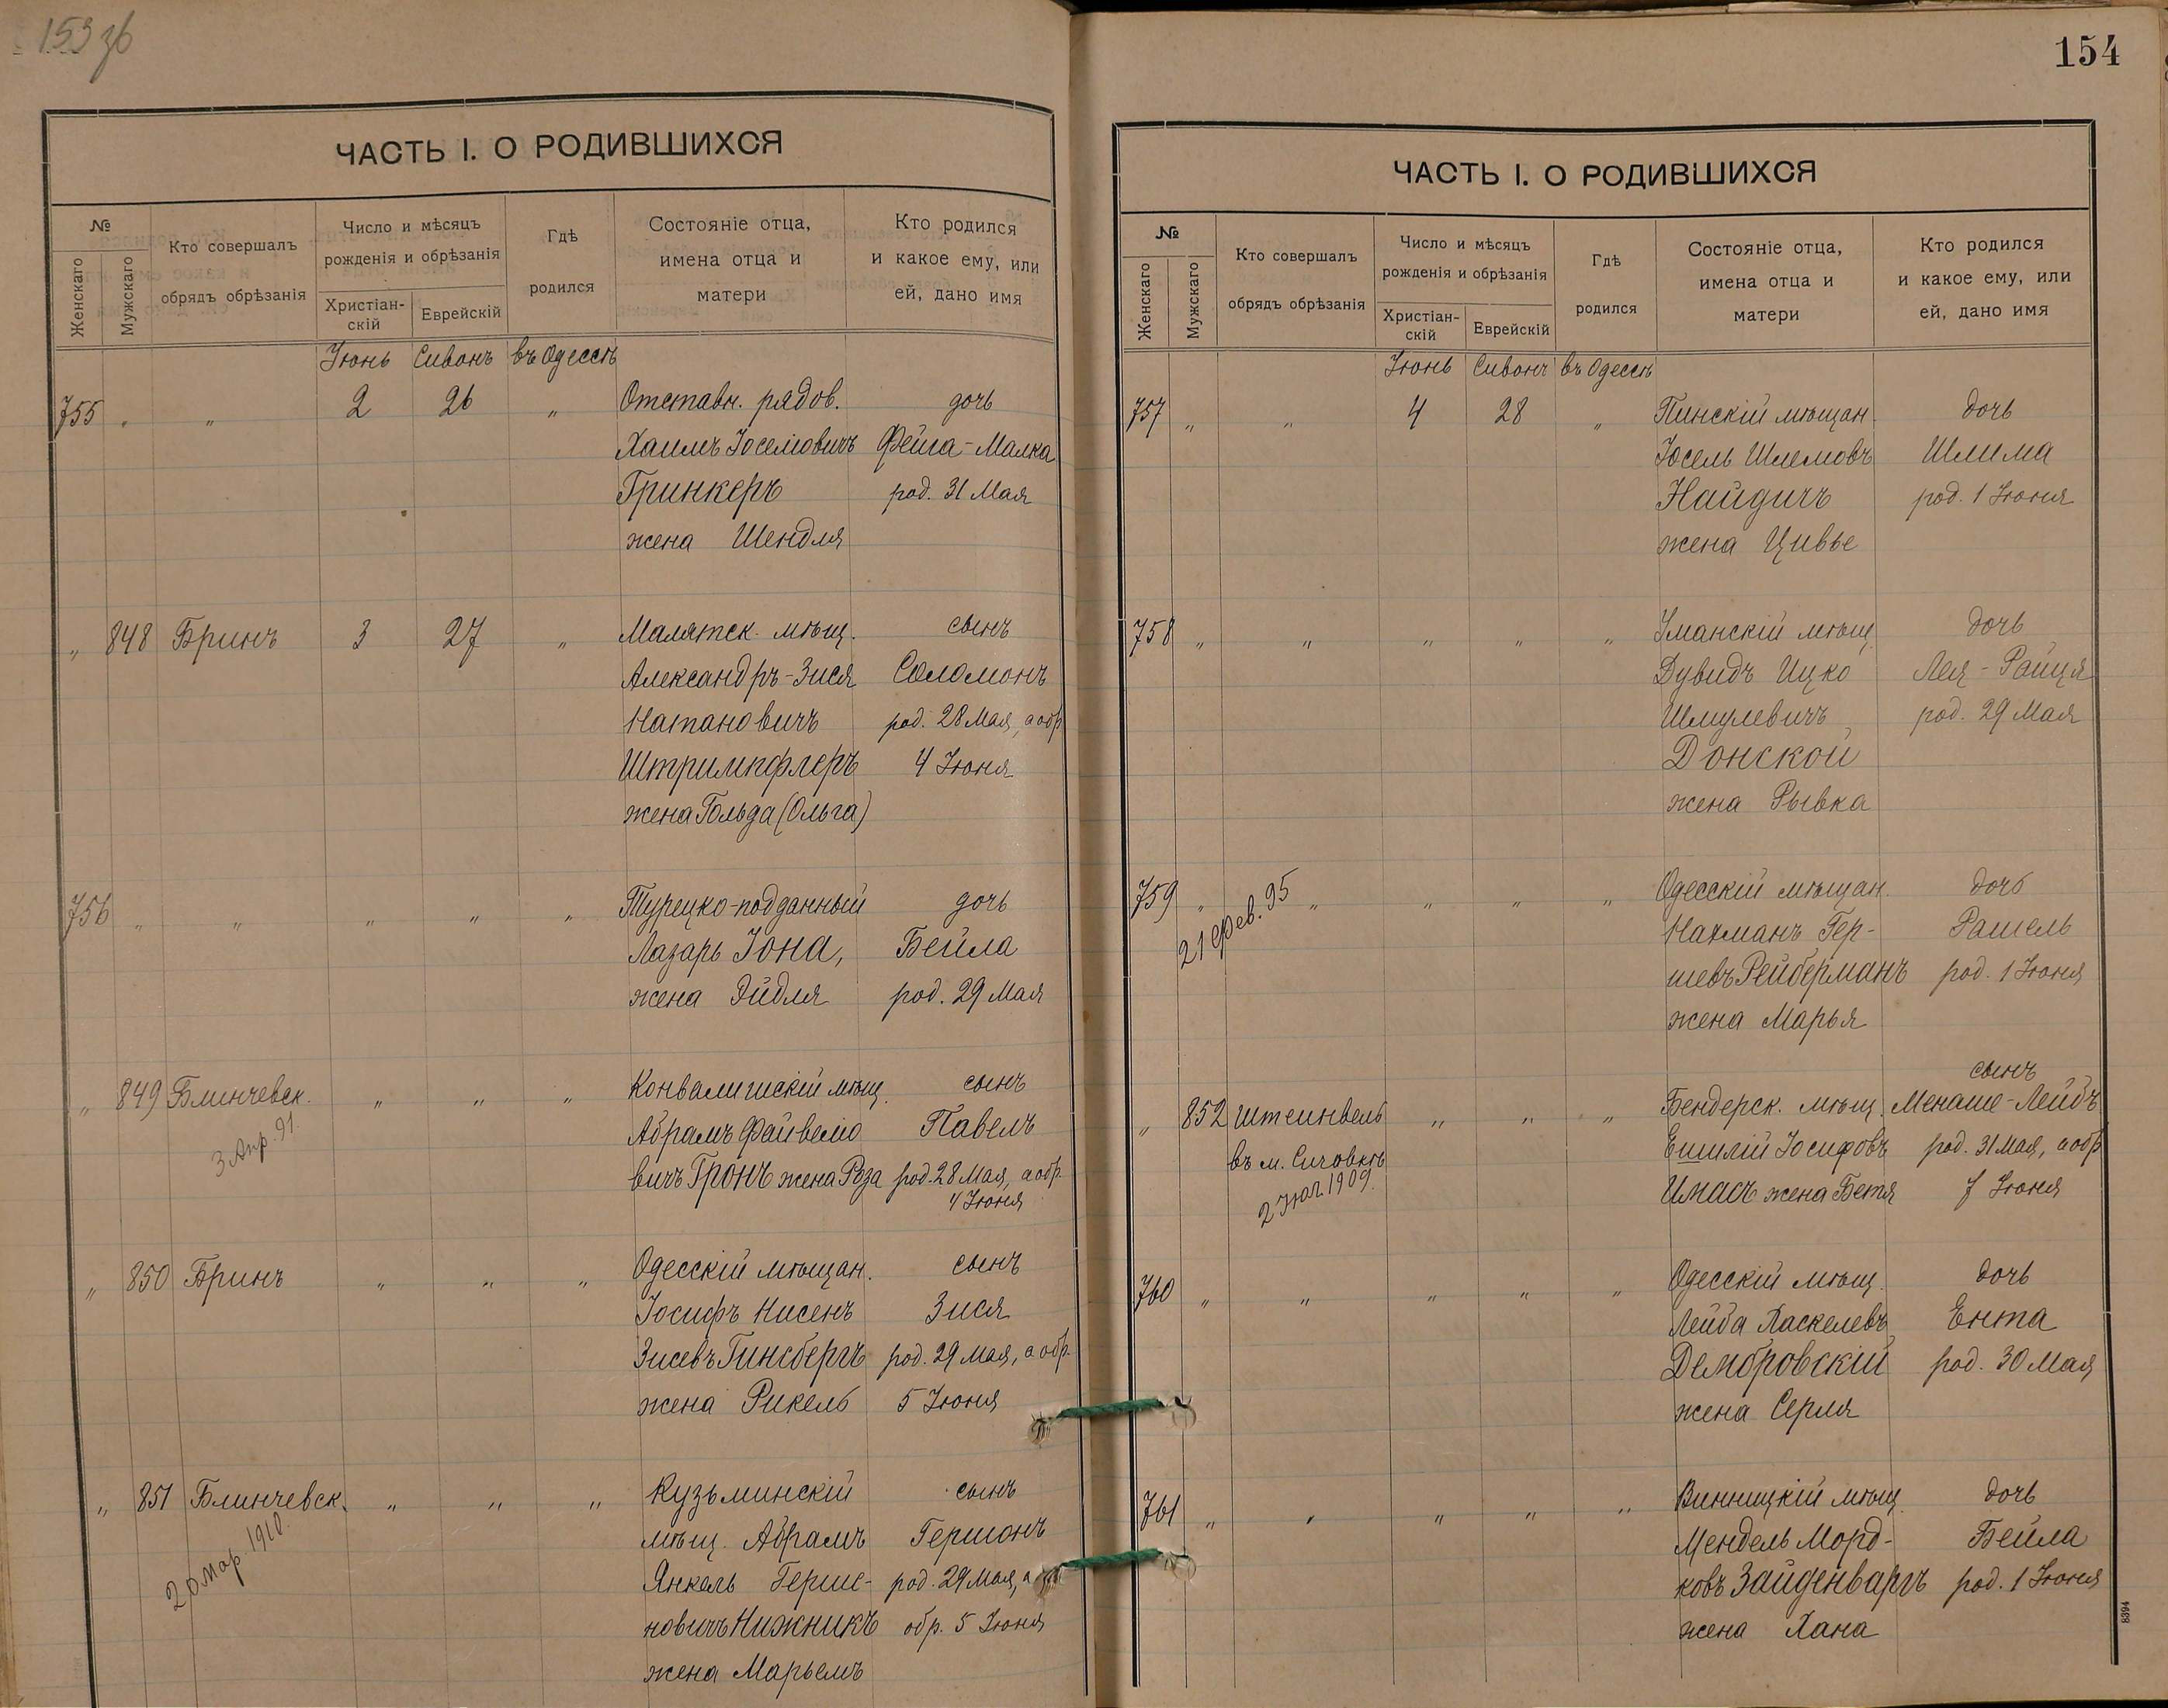 153 зв
ЧАСТЬ I. О РОДИВШИХСЯ
№
Женскаго
Мужскаго
Кто совершалъ
обрядъ обрѣзанія
Число и мѣсяцъ
рожденія и обрѣзанія
Христіан-
скій
Еврейскій
Гдѣ
родился
Состояніе отца,
имена отца и
матери
Кто родился
и какое ему, или
ей, дано имя
Іюнь Сивонъ въ Одессѣ
755 „ „ 2 26 „ Отставн. рядов. дочь
Хаимъ Іоселіовичъ Фейга-Малка
Гринкеръ род. 31 Мая
жена Шендля
„ 848 Бринъ 3 27 „ Малятск. мѣщ. сынъ
Александръ-Зися Соломонъ
Натановичъ род. 28 Мая, а обр
Штримпфлеръ 4 Іюня
жена Гольда (Ольга)
756 „ „ „ „ „ Турецко-подданный дочь
Лазарь Іона, Бейла
жена Эйдля род. 29 Мая
„ 849 Блинчевск. „ „ „ Конвалишскій мѣщ. сынъ
3 Апр. 91.
Абрамъ Файвелио Павелъ
вичъ Гронъ жена Роза род. 28 Мая, а обр.
4 Іюня
„ 850 Бринъ „ „ „ Одесскій мѣщан. сынъ
Іосифъ Нисенъ Зися
Зисевъ Гинсбергъ род. 29 Мая, а обр.
жена Рикель 5 Іюня
„ 851 Блинчевск. „ „ „ Кузьминскій сынъ
20 мар 1910.
мѣщ. Абрамъ Гершонъ
Янкель Герше- род. 29 Мая, а
новичъ Нижникъ обр. 5 Іюня
жена Марьемъ
154
ЧАСТЬ I. О РОДИВШИХСЯ
№
Женскаго
Мужскаго
Кто совершалъ
обрядъ обрѣзанія
Число и мѣсяцъ
рожденія и обрѣзанія
Христіан-
скій
Еврейскій
Гдѣ
родился
Состояніе отца,
имена отца и
матери
Кто родился
и какое ему, или
ей, дано имя
Іюнь Сивонъ въ Одессѣ
757 „ „ 4 28 „ Пинскій мѣщан. дочь
Іосель Шлемовъ Шлима
Найдичъ род. 1 Іюня
жена Цивье
758 „ „ „ „ „ Уманскій мѣщ. дочь
Дувидъ Ицко Лея-Райця
Шмулевичъ род. 29 Мая
Донской
жена Рывка
759 „ „ „ „ „ Одесскій мѣщан. дочь
21 фев. 95
Нахманъ Гер- Рашель
шевъ Рейберманъ род. 1 Іюня
жена Марья
сынъ
„ 852 Штейнвель „ „ „ Бендерск. мѣщ. Менаше-Лейбъ
въ м.
Іосифовъ род. 31 Мая, а обр
2 Іюл. 1909.
жена Бетя 7 Іюня
760 „ „ „ „ „ Одесскій мѣщ. дочь
Лейба Хаскелевъ Ента
Дембровскій род. 30 Мая
жена Серля
761 „ „ „ „ „ Винницкій мѣщ. дочь
Мендель Морд- Бейла
ковъ Зайденваргъ род. 1 Іюня
жена Хана
8394